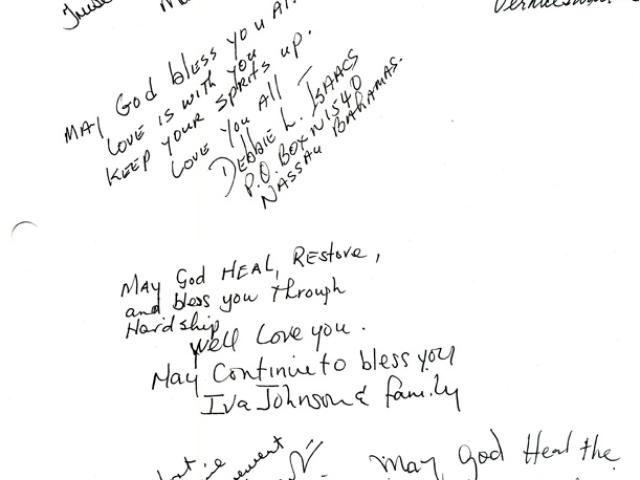 MAY God bless you Al
Love is with you
KEEP your Spirits up.
Love You All
DEBBIE L. ISAACS
P.O. BOX N1540
NASSAU BAHAMAS.
MAY God HEAL, REstore,
and bless you through
Hardship
Well Love you.
May Continue to bless you
Iva Johnson & family
May God Heal the